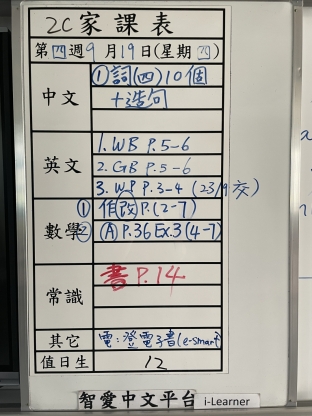 2C家課表
第四週9月19日(星期四)
中文
①詞(四)10個
+造句
英文
1. WB P.5-6
2. GB P.5-6
3. WP P.3-4 (23/9交)
數學
① 作改 P.(2-7)
② (A) P.36 Ex3 (4-7)
常識
書 P.14
其它
電:登電子書(e-smart)
值日生
12
智愛中文平台 i-Learner